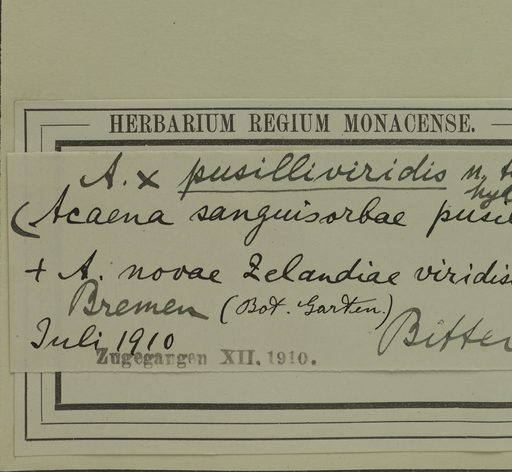 HERBARIUM REGIUM MONACENSE.
A. x pusilliviridis n.
(Acaena sanguisorbae
+ A. novae Zelandiae
Bremen (Bot. Garten.)
Juli 1910 Bitter
Zugegangen XII. 1910.